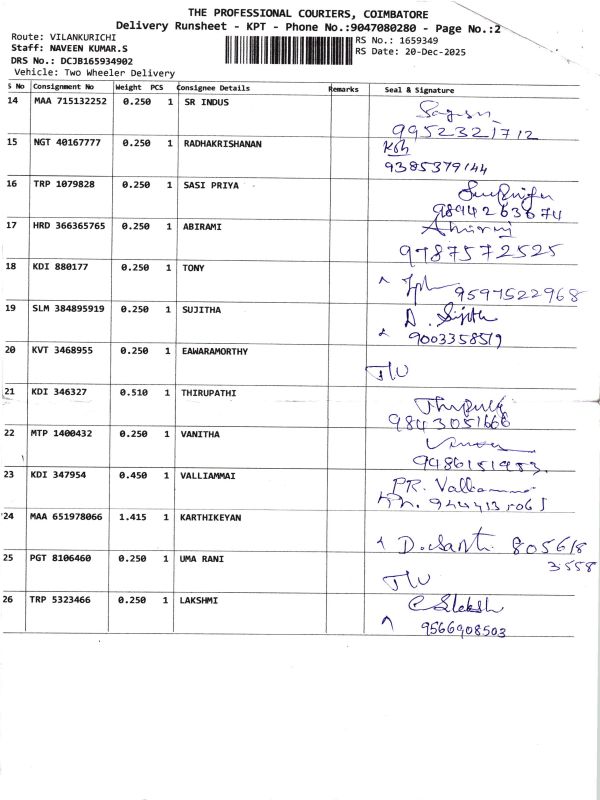 THE PROFESSIONAL COURIERS, COIMBATORE
Delivery Runsheet - KPT - Phone No.:9047080280 - Page No.:2
Route: VILANKURICHI
RS No.: 1659349
Staff: NAVEEN KUMAR.S
RS Date: 20-Dec-2025
DRS No.: DCJB165934902
Vehicle: Two Wheeler Delivery
S No Consignment No Weight PCS Consignee Details Remarks Seal & Signature
14 MAA 715132252 0.250 1 SR INDUS
9952321712
15 NGT 40167777 0.250 1 RADHAKRISHANAN
9385379144
16 TRP 1079828 0.250 1 SASI PRIYA
9894263674
17 HRD 366365765 0.250 1 ABIRAMI
9787572525
18 KDI 880177 0.250 1 TONY
9597522968
19 SLM 384895919 0.250 1 SUJITHA
9003358519
20 KVT 3468955 0.250 1 EAWARAMORTHY
21 KDI 346327 0.510 1 THIRUPATHI
9843051666
22 MTP 1400432 0.250 1 VANITHA
9486151953.
23 KDI 347954 0.450 1 VALLIAMMAI
PR. Valliammai
24 MAA 651978066 1.415 1 KARTHIKEYAN
805618
3558
25 PGT 8106460 0.250 1 UMA RANI
26 TRP 5323466 0.250 1 LAKSHMI
9566908503